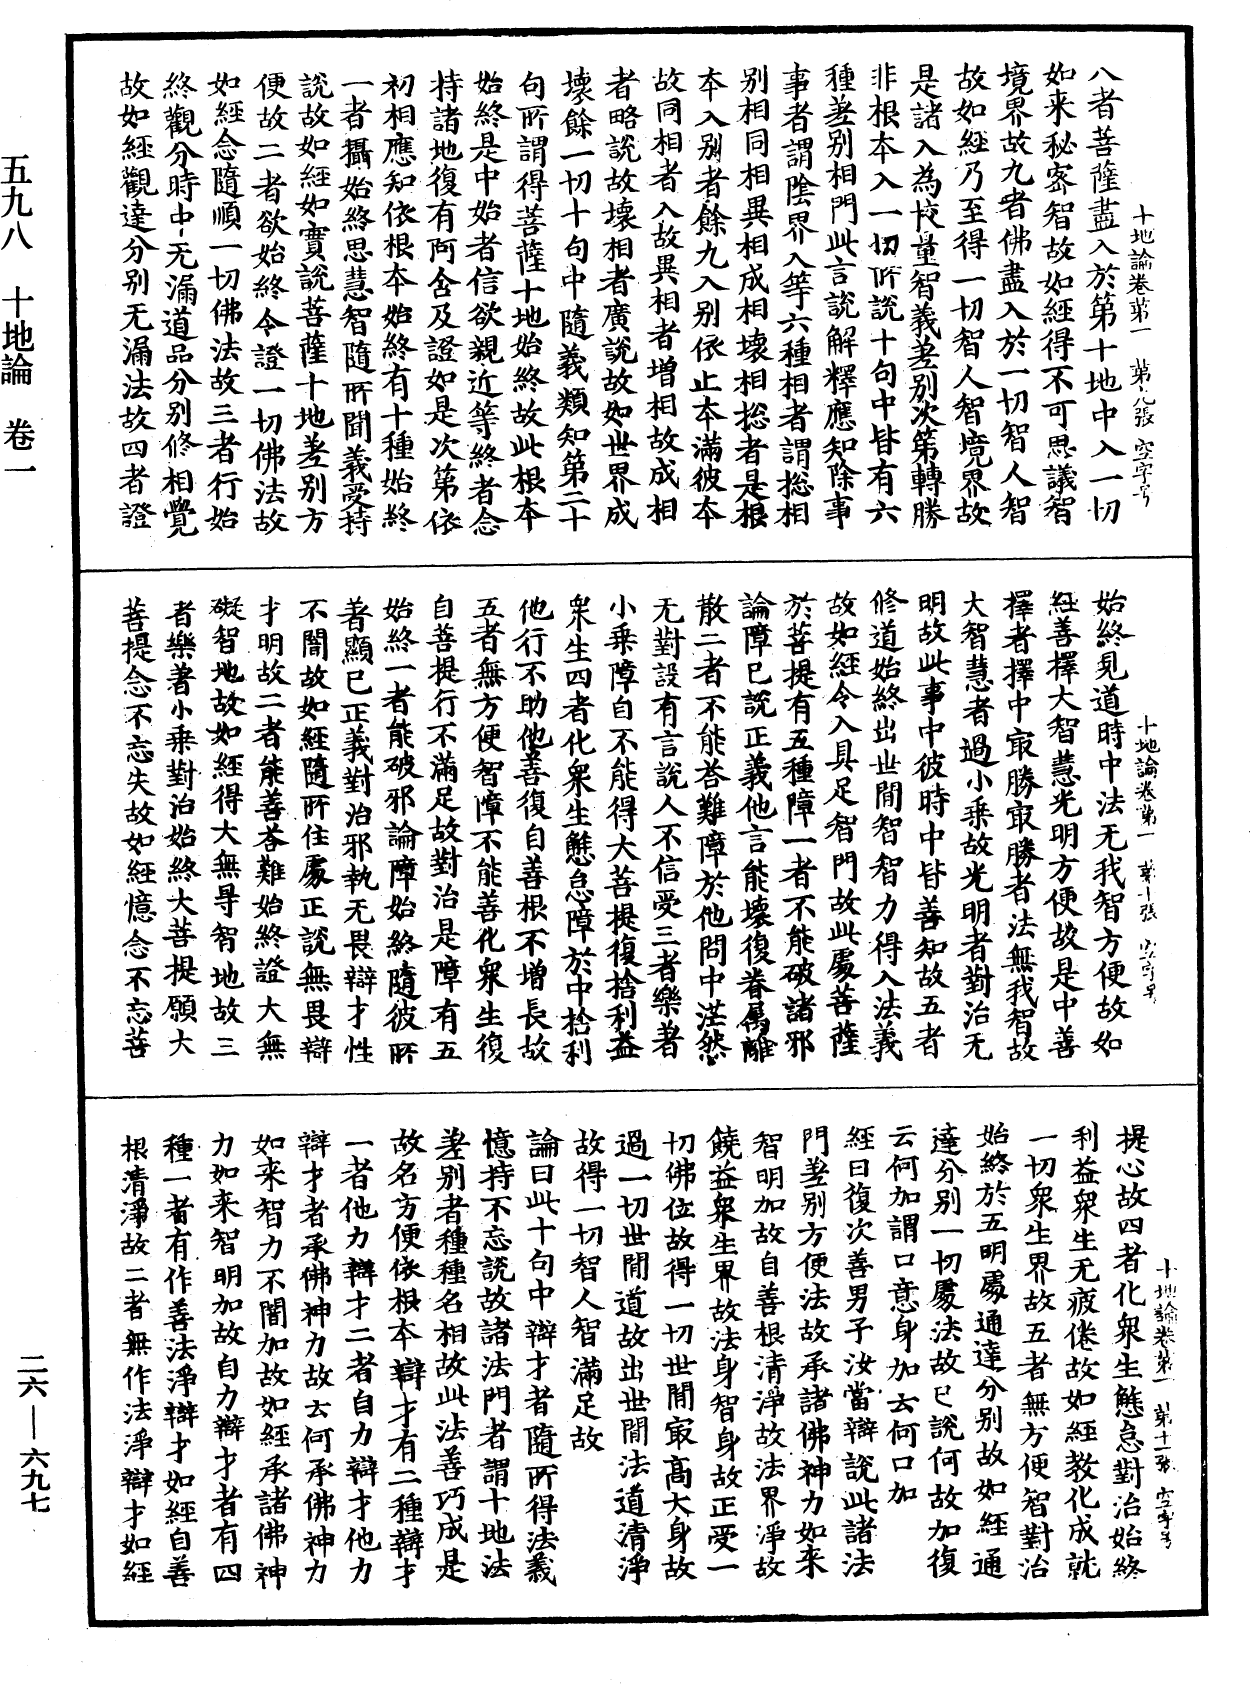 五九八　十地論　卷一
二六—六九七
十地論卷第一　第九張　空字号
八者菩薩盡入於第十地中入一切
如来秘密智故如經得不可思議智
境界故九者佛盡入於一切智人智
故如經乃至得一切智人智境界故
是諸入為挍量智義差别次第轉勝
非根本入一切所說十句中皆有六
種差别相門此言說解釋應知除事
事者謂陰界入等六種相者謂捴相
别相同相異相成相壞相捴者是根
本入别者餘九入别依止本滿彼本
故同相者入故異相者增相故成相
者略說故壞相者廣說故如世界成
壞餘一切十句中隨義類知第二十
句所謂得菩薩十地始終故此根本
始終是中始者信欲親近等終者念
持諸地復有阿含及證如是次第依
初相應知依根本始終有十種始終
一者攝始終思慧智隨所聞義受持
說故如經如實說菩薩十地差别方
便故二者欲始終令證一切佛法故
如經念隨順一切佛法故三者行始
終觀分時中无漏道品分别修相覺
故如經觀達分别无漏法故四者證
十地論卷第一　第十張　空字号
始終見道時中法无我智方便故如
經善擇大智慧光明方便故是中善
擇者擇中冣勝冣勝者法無我智故
大智慧者過小乘故光明者對治无
明故此事中彼時中皆善知故五者
修道始終出世間智智力得入法義
故如經令入具足智門故此處菩薩
於菩提有五種障一者不能破諸邪
論障已說正義他言能壞復眷屬離
散二者不能荅難障於他問中茫然
无對設有言說人不信受三者樂著
小乘障自不能得大菩提復捨利益
衆生四者化衆生懈怠障於中捨利
他行不助他善復自善根不增長故
五者無方便智障不能善化衆生復
自菩提行不滿足故對治是障有五
始終一者能破邪論障始終隨彼所
著顯已正義對治邪執无畏辯才性
不闇故如經隨所住處正說無畏辯
才明故二者能善荅難始終證大無
礙智地故如經得大無㝵智地故三
者樂著小乘對治始終大菩提願大
菩提念不忘失故如經憶念不忘菩
十地論卷第一　第十一張　空字号
提心故四者化衆生懈怠對治始終
利益衆生无疲倦故如經教化成就
一切衆生界故五者無方便智對治
始終於五明處通達分别故如經通
達分别一切處法故已說何故加復
云何加謂口意身加云何口加
經曰復次善男子汝當辯說此諸法
門差别方便法故承諸佛神力如来
智明加故自善根清淨故法界淨故
饒益衆生界故法身智身故正受一
切佛位故得一切世間冣高大身故
過一切世間道故出世間法道清淨
故得一切智人智滿足故
論曰此十句中辯才者隨所得法義
憶持不忘說故諸法門者謂十地法
差别者種種名相故此法善巧成是
故名方便依根本辯才有二種辯才
一者他力辯才二者自力辯才他力
辯才者承佛神力故云何承佛神力
如来智力不闇加故如經承諸佛神
力如来智明加故自力辯才者有四
種一者有作善法淨辯才如經自善
根清淨故二者無作法淨辯才如經